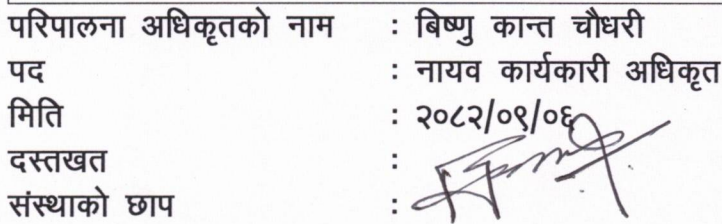 परिपालना अधिकृतको नाम : बिष्णु कान्त चौधरी
पद : नायव कार्यकारी अधिकृत
मिति : २०८२/०९/०६
दस्तखत :
संस्थाको छाप :